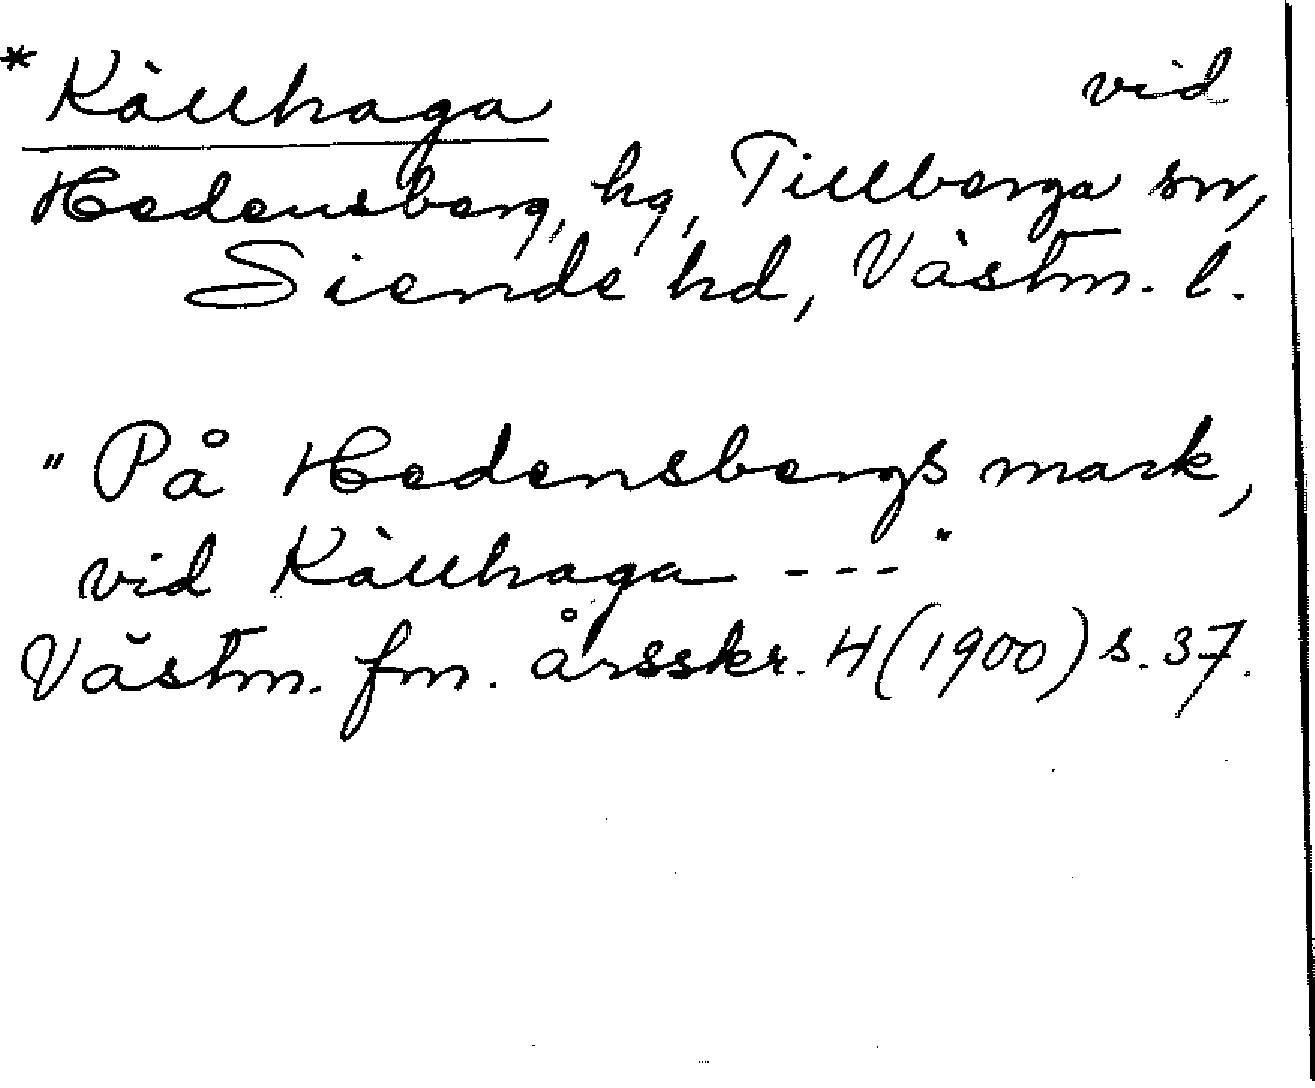 * Källhaga vid
Hedensberg, hg, Tillberga sn,
Siende hd, Västm. l.
"På Hedensbergs mark,
vid Källhaga ---"
Västm. fm. årsskr. 4 (1900) s. 37.